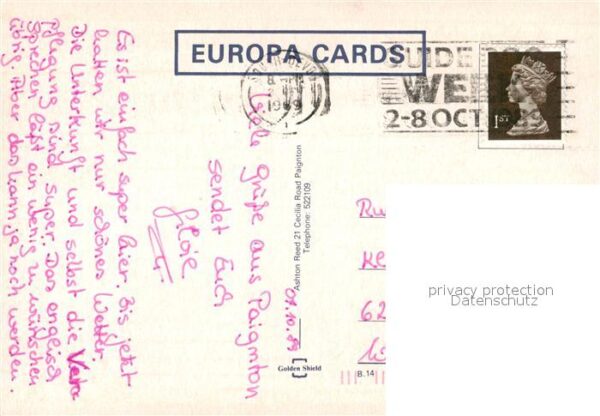 EUROPA CARDS
GUIDE DOG
WEEK
2-8 OCT
1989
1ST
Viele Grüße aus Paignton
sendet Euch
Es ist einfach super hier. Bis jetzt
hatten wir nur schönes Wetter.
Die Unterkunft und selbst die
pflegung sind super. Das englisch
sprechen läßt ein wenig zu wünschen
übrig. Aber das kann ja noch werden.
01.10.89
Ashton Reed 21 Cecilia Road Paignton
Telephone: 522109
Golden Shield
B.14
Ru
Kl
62
privacy protection
Datenschutz